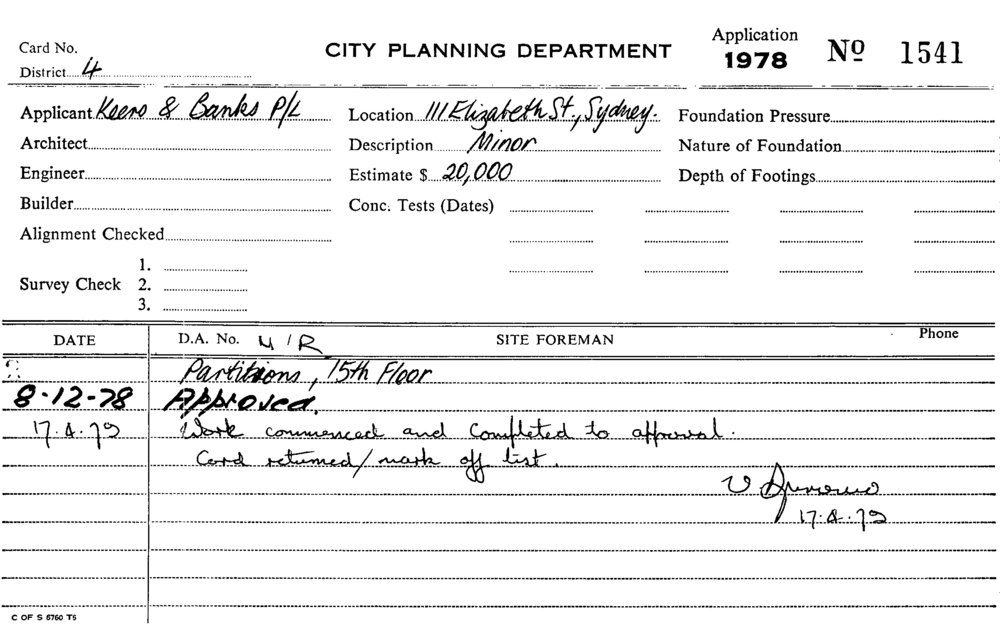 Card No. CITY PLANNING DEPARTMENT Application 1978 Nº 1541
District 4
Applicant Keers & Banks P/L Location 111 Elizabeth St., Sydney. Foundation Pressure
Architect Description Minor Nature of Foundation
Engineer Estimate $ 20,000 Depth of Footings
Builder Conc. Tests (Dates)
Alignment Checked
Survey Check 1.
2.
3.
DATE D.A. No. M/R SITE FOREMAN Phone
Partitions, 15th Floor
8-12-78 Approved.
17.4.79 Work commenced and completed to approval.
Card returned/mark off list.
17.4.79
C OF S 5760 T5